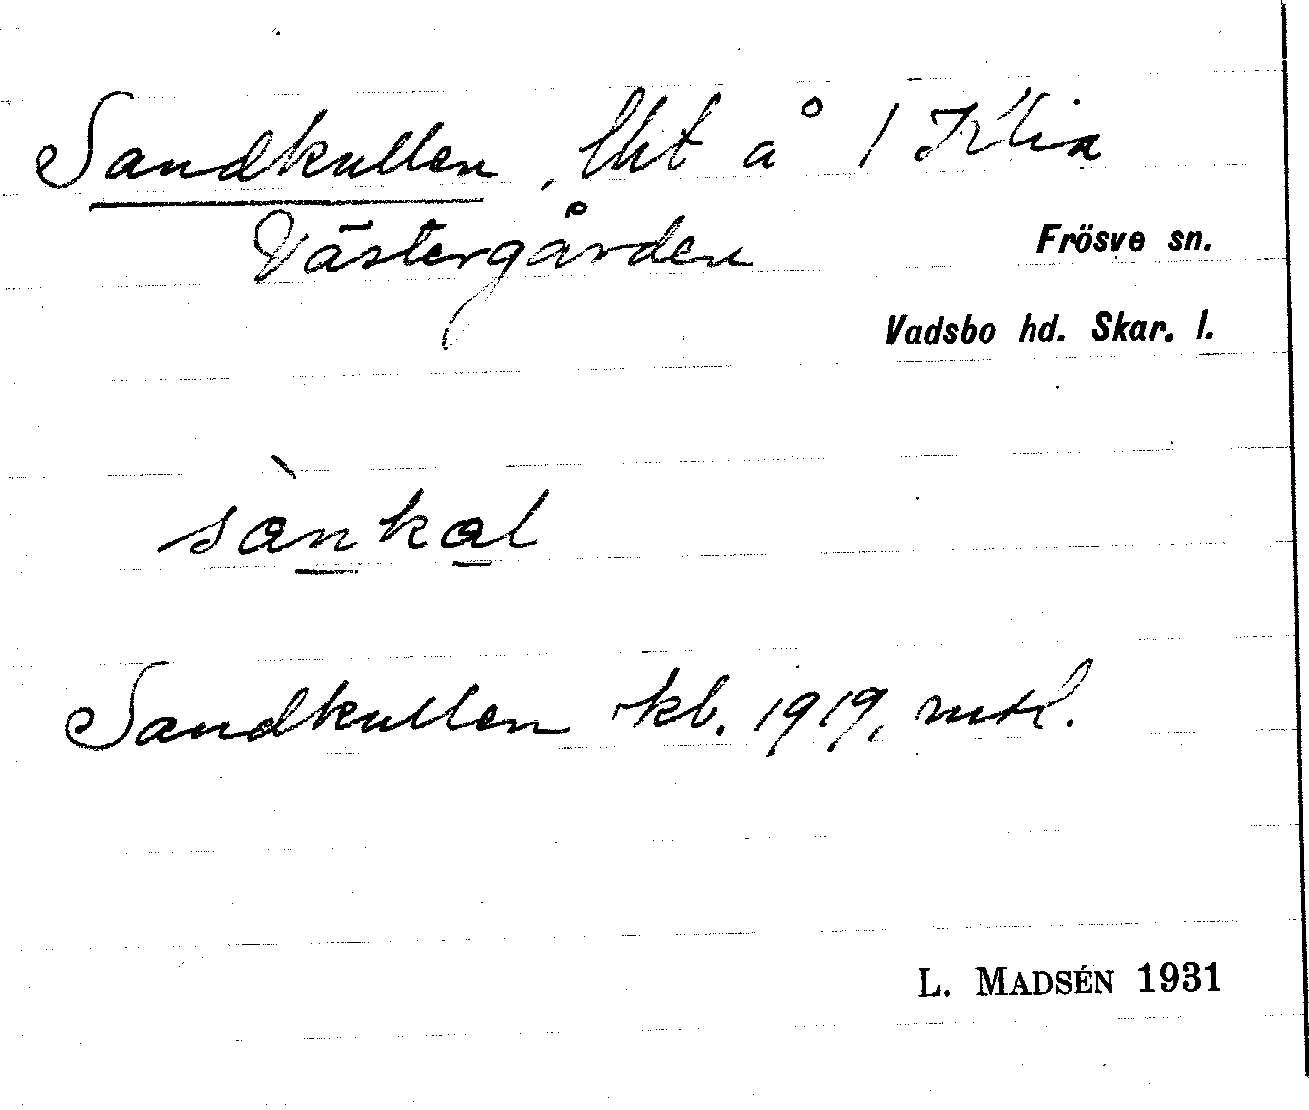 Sandkullen, lht å 1 Klia
Västergården
Frösve sn.
Vadsbo hd. Skar. l.
sànkal
Sandkullen kb. 1919, mtl.
L. MADSÉN 1931